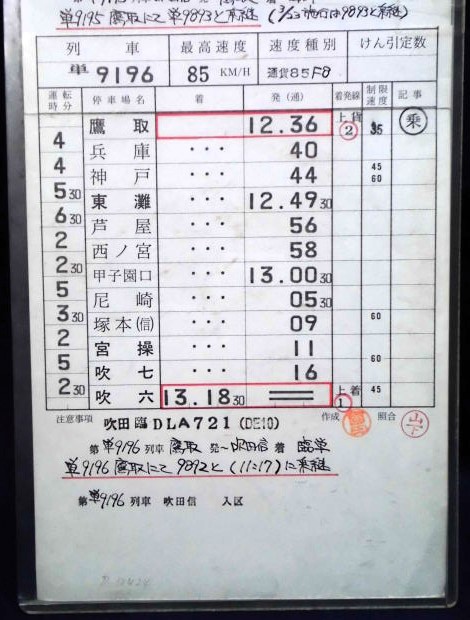 単9195 鷹取にて 単9893と承継
列 車 最高速度 速度種別 けん引定数
単9196 85 KM/H 通貨85F8
運転時分 停車場名 着 発(通) 着発線 制限速度 記事
鷹取 12.36 上貨② 35 乗
4
兵庫 ・・・ 40
4
神戸 ・・・ 44 45 60
5 30
東灘 ・・・ 12.49 30
6 30
芦屋 ・・・ 56
2
西ノ宮 ・・・ 58
2 30
甲子園口 ・・・ 13.00 30
5
尼崎 ・・・ 05 30
3 30
塚本(信) ・・・ 09 60
2
宮操 ・・・ 11
5 60
吹七 ・・・ 16
2 30
吹六 13.18 30 上着① 45
注意事項 吹田臨DLA721(DE10) 作成 照合 山下
第単9196列車 鷹取 発〜吹田信 着 臨単
単9196 鷹取にて 9892と(11:17)に承継
第単9196列車 吹田信 入区